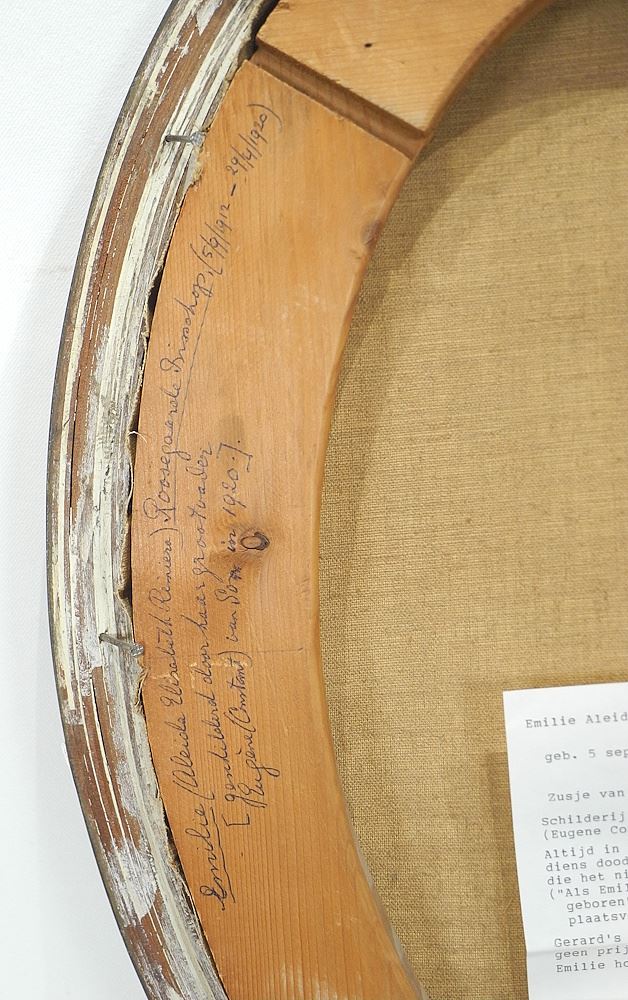 Emilie (Aleida Elisabeth Reiniera) Roosegaarde Bisschop, (5/9/1912 – 29/4/1920)
[geschilderd door haar grootvader
(Eugène (Constant) van Som in 1920.].
Emilie Aleid
geb. 5 sep
Zusje van
Schilderij
(Eugene Co
Altijd in
diens dood
die het ni
("Als Emil
geboren"
plaatsv
Gerard's
geen prij
Emilie ho